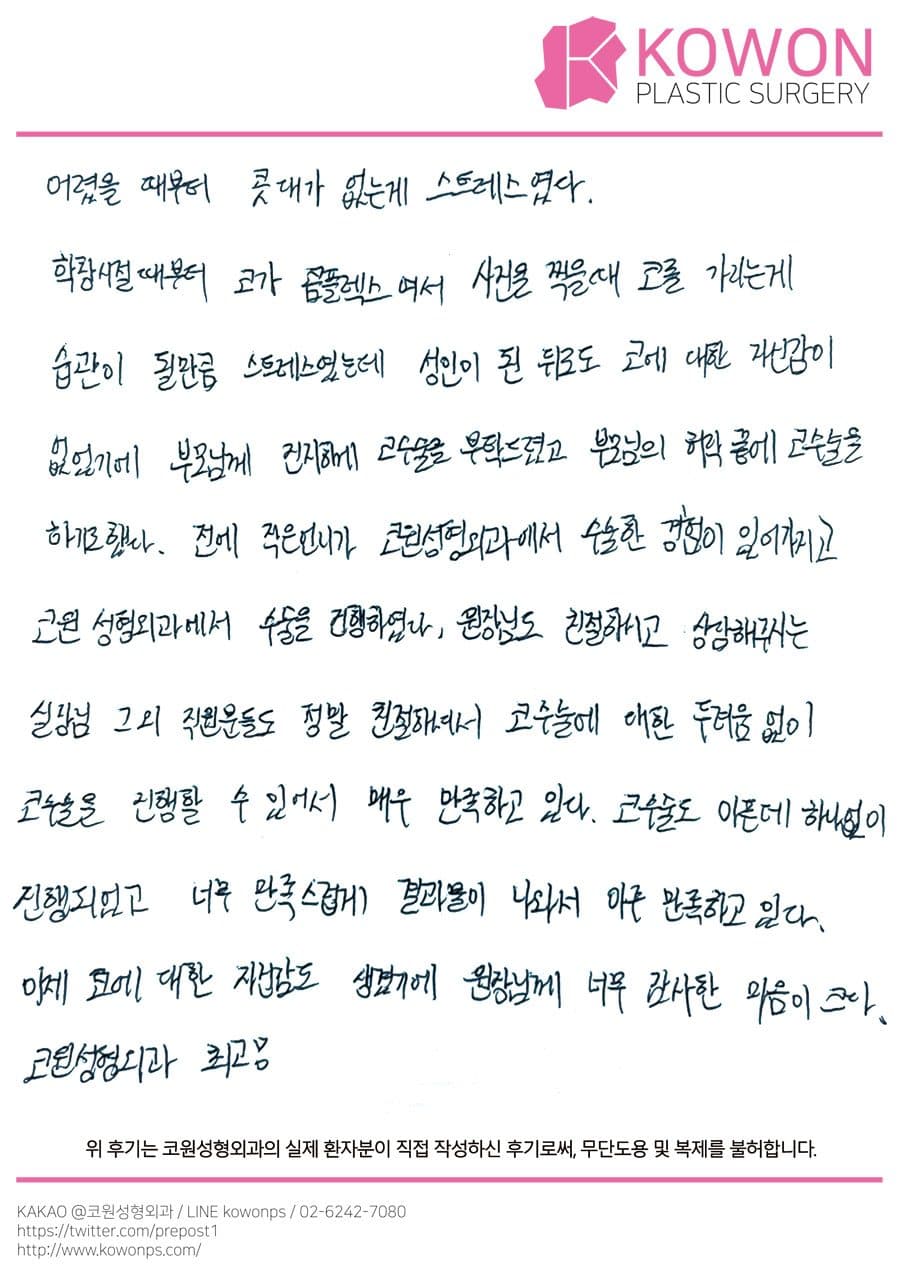 KOWON
PLASTIC SURGERY
어렸을 때부터 콧대가 없는게 스트레스였다.
학창시절때부터 코가 콤플렉스여서 사진을 찍을때 코를 가리는게
습관이 될만큼 스트레스였는데 성인이 된 뒤로도 코에 대한 자신감이
없었기에 부모님께 진지하게 코수술을 부탁드렸고 부모님의 허락 끝에 코수술을
하기로했다. 전에 작은언니가 코원성형외과에서 수술한 경험이 있어가지고
코원 성형외과에서 수술을 진행하였다, 원장님도 친절하시고 상담해주시는
실장님 그 외 직원분들도 정말 친절하셔서 코수술에 대한 두려움 없이
코수술을 진행할 수 있어서 매우 만족하고 있다. 코수술도 아픈데 하나없이
진행되었고 너무 만족스럽게 결과물이 나와서 아주 만족하고 있다.
이제 코에 대한 자신감도 생겼기에 원장님께 너무 감사한 마음이 크다.
코원성형외과 최고
위 후기는 코원성형외과의 실제 환자분이 직접 작성하신 후기로써, 무단도용 및 복제를 불허합니다.
KAKAO @코원성형외과 / LINE kowonps / 02-6242-7080
https://twitter.com/prepost1
http://www.kowonps.com/